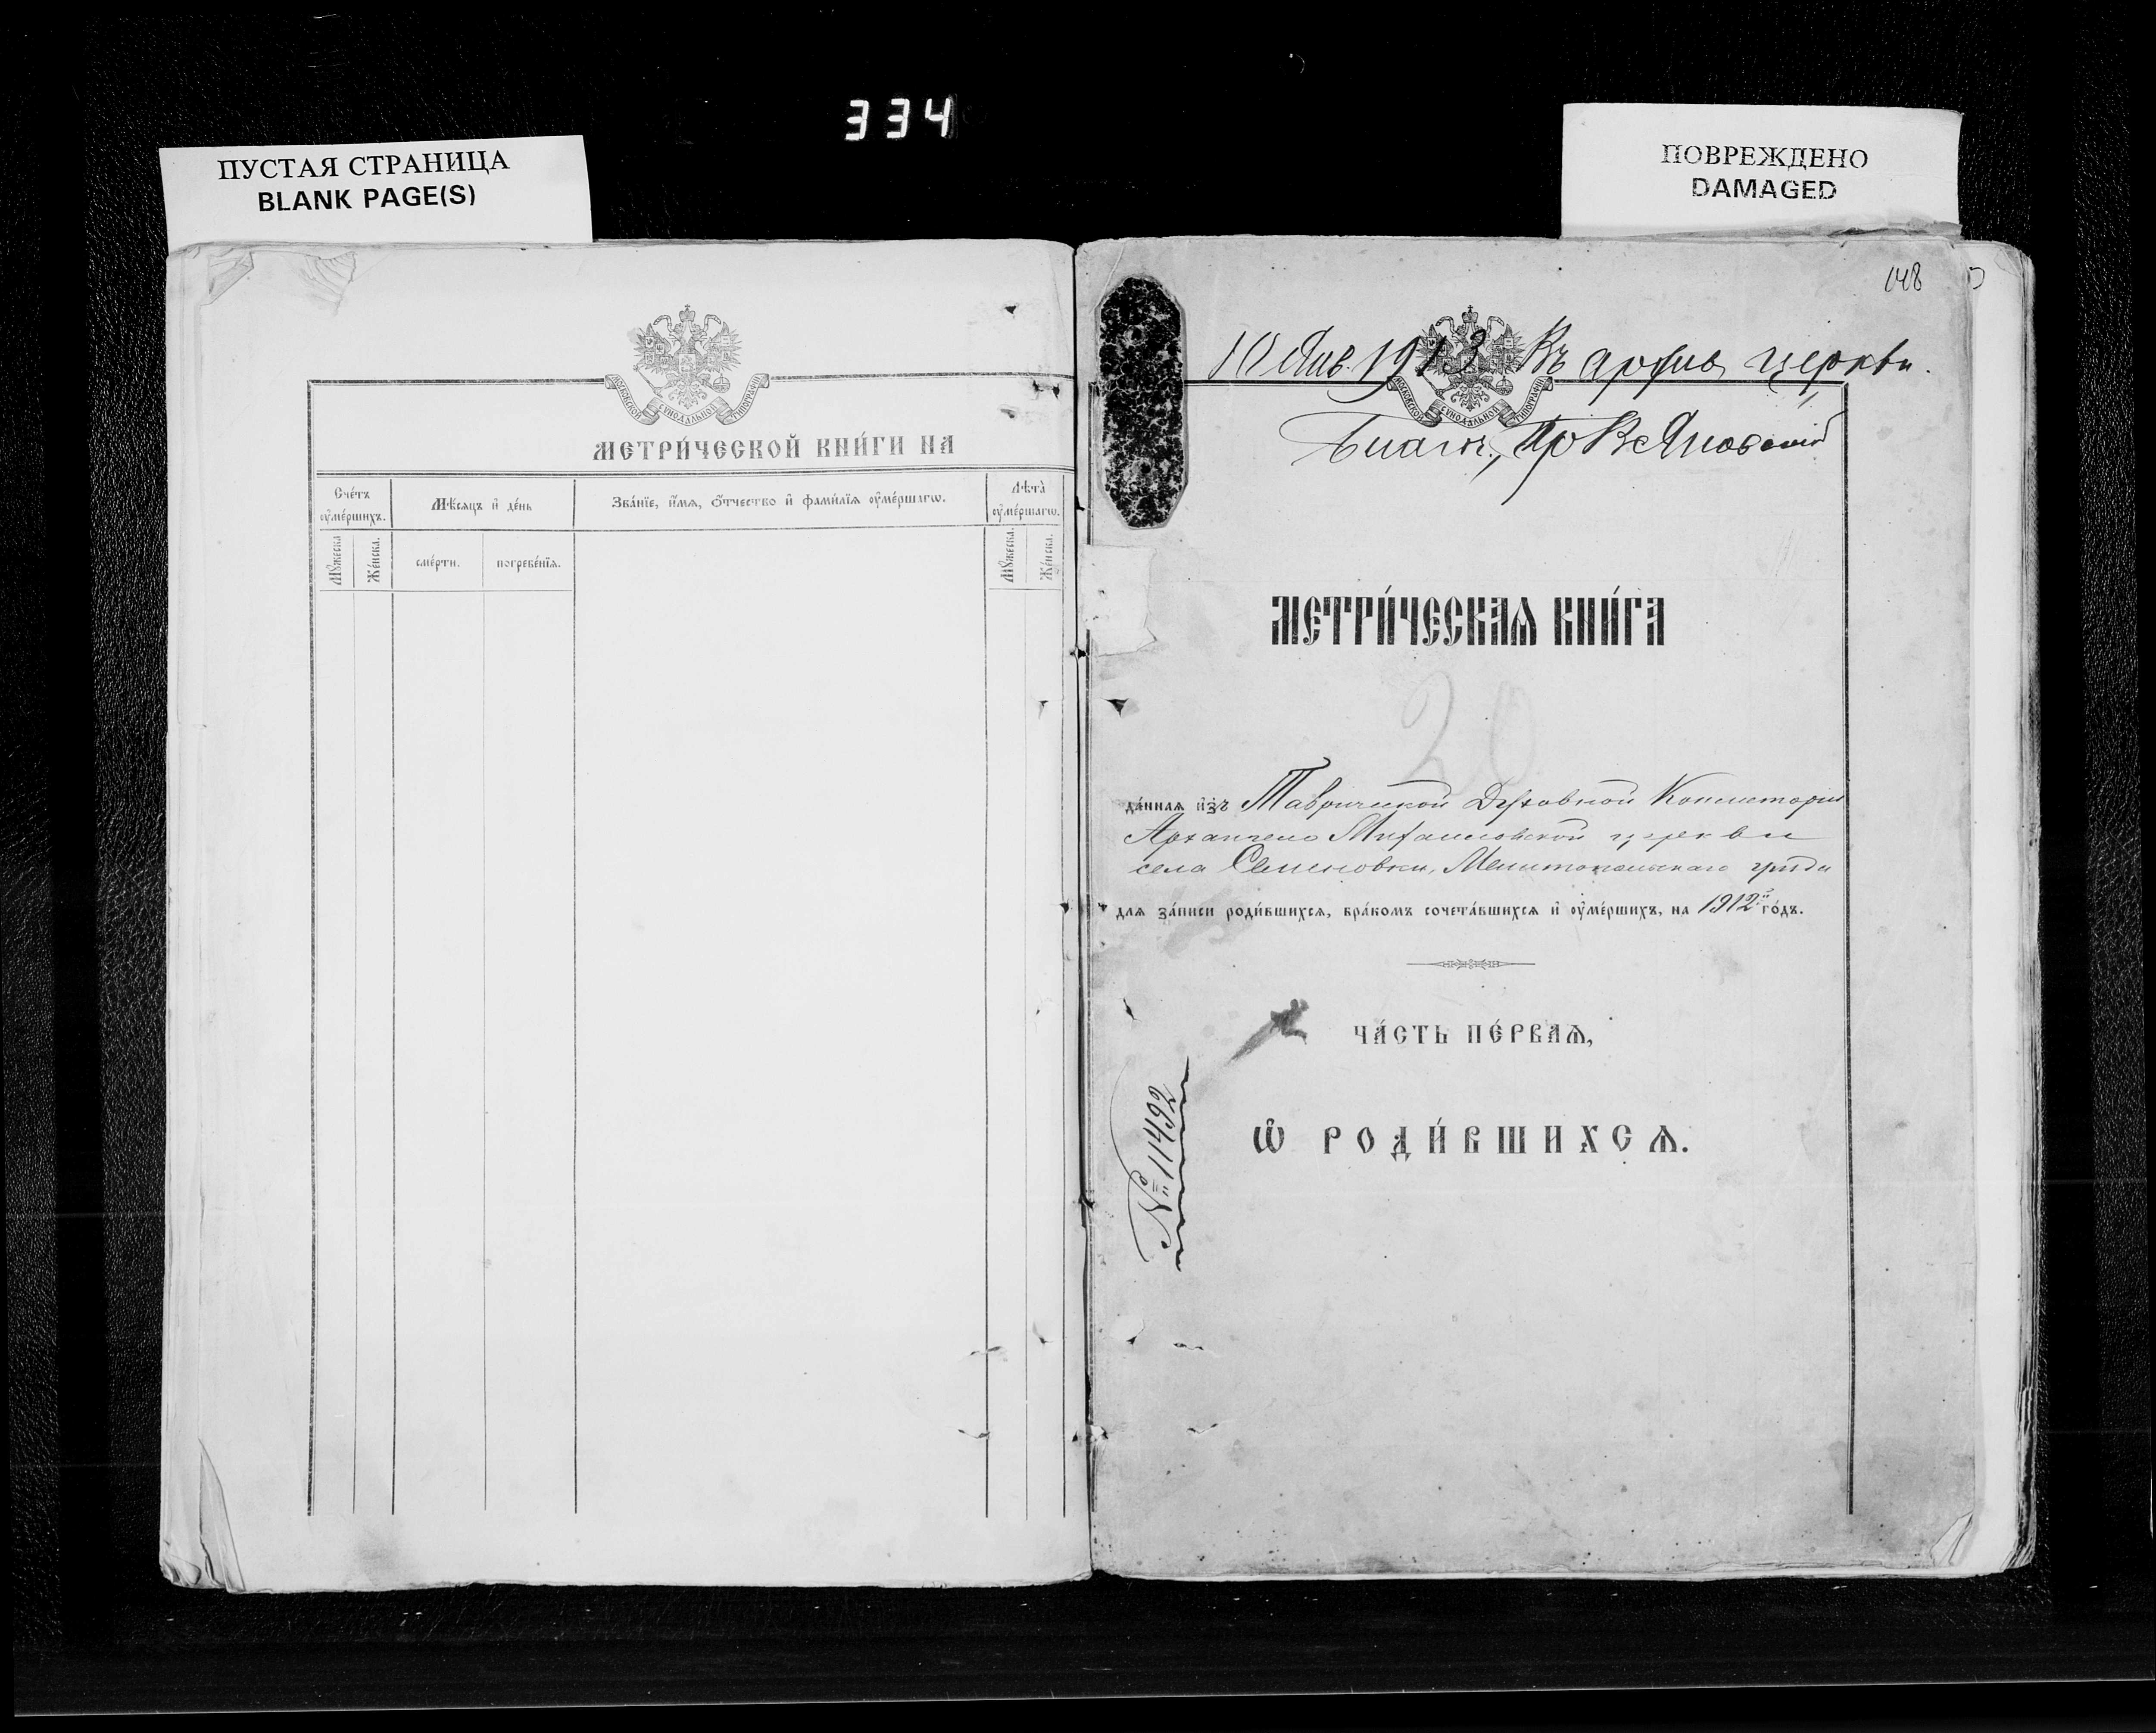 334
ПУСТАЯ СТРАНИЦА
BLANK PAGE(S)
ПОВРЕЖДЕНО
DAMAGED
МОСКОВСКОЙ СѴНОДАЛЬНОЙ ТИПОГРАФІИ
МЕТРИ́ЧЕСКОЙ КНИ́ГИ НА
Сче́тъ ᲂу҆ме́ршихъ.
Мѣ́сяцъ и҆ де́нь
Зва́нїе, и҆́мѧ, ѻ҆́тчество и҆ фами́лїѧ ᲂу҆ме́ршагѡ.
Лѣта̀ ᲂу҆ме́ршагѡ.
Мꙋ́жеска
Же́нска.
сме́рти.
погребе́нїѧ.
Мꙋ́жеска.
Же́нска.
148
10 Янв. 1913 Въ архивъ церкви.
МОСКОВСКОЙ СѴНОДАЛЬНОЙ ТИПОГРАФІИ
Благоч., Пр В Яновскій
МЕТРИ́ЧЕСКАѦ КНИ́ГА
20
да́ннаѧ и҆зъ Таврической Духовной Консисторіи
Архангело Михаиловской церкви
села Семеновки, Мелитопольскаго уѣзда
длѧ за́писи роди́вшихсѧ, бра́комъ сочета́вшихсѧ и҆ ᲂу҆ме́ршихъ, на 1912й го́дъ.
ЧА́СТЬ ПЕ́РВАѦ,
Ѽ РОДИ́ВШИХСѦ.
№ 11492